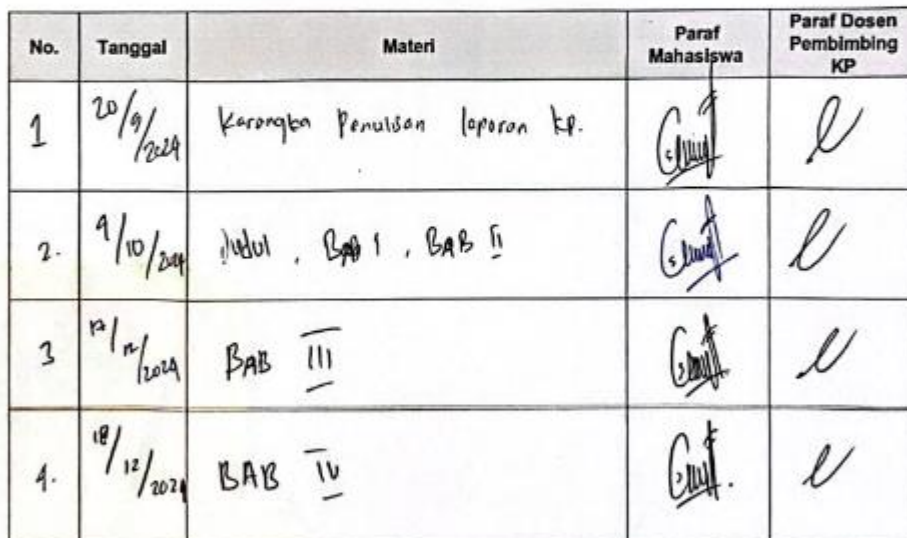 No. Tanggal Materi Paraf Mahasiswa Paraf Dosen Pembimbing KP
1 20/9/2024 Karangka Penulisan laporan KP.
2. 9/10/2024 Judul, BAB I, BAB II
3 /12/2024 BAB III
4. 18/12/2024 BAB IV